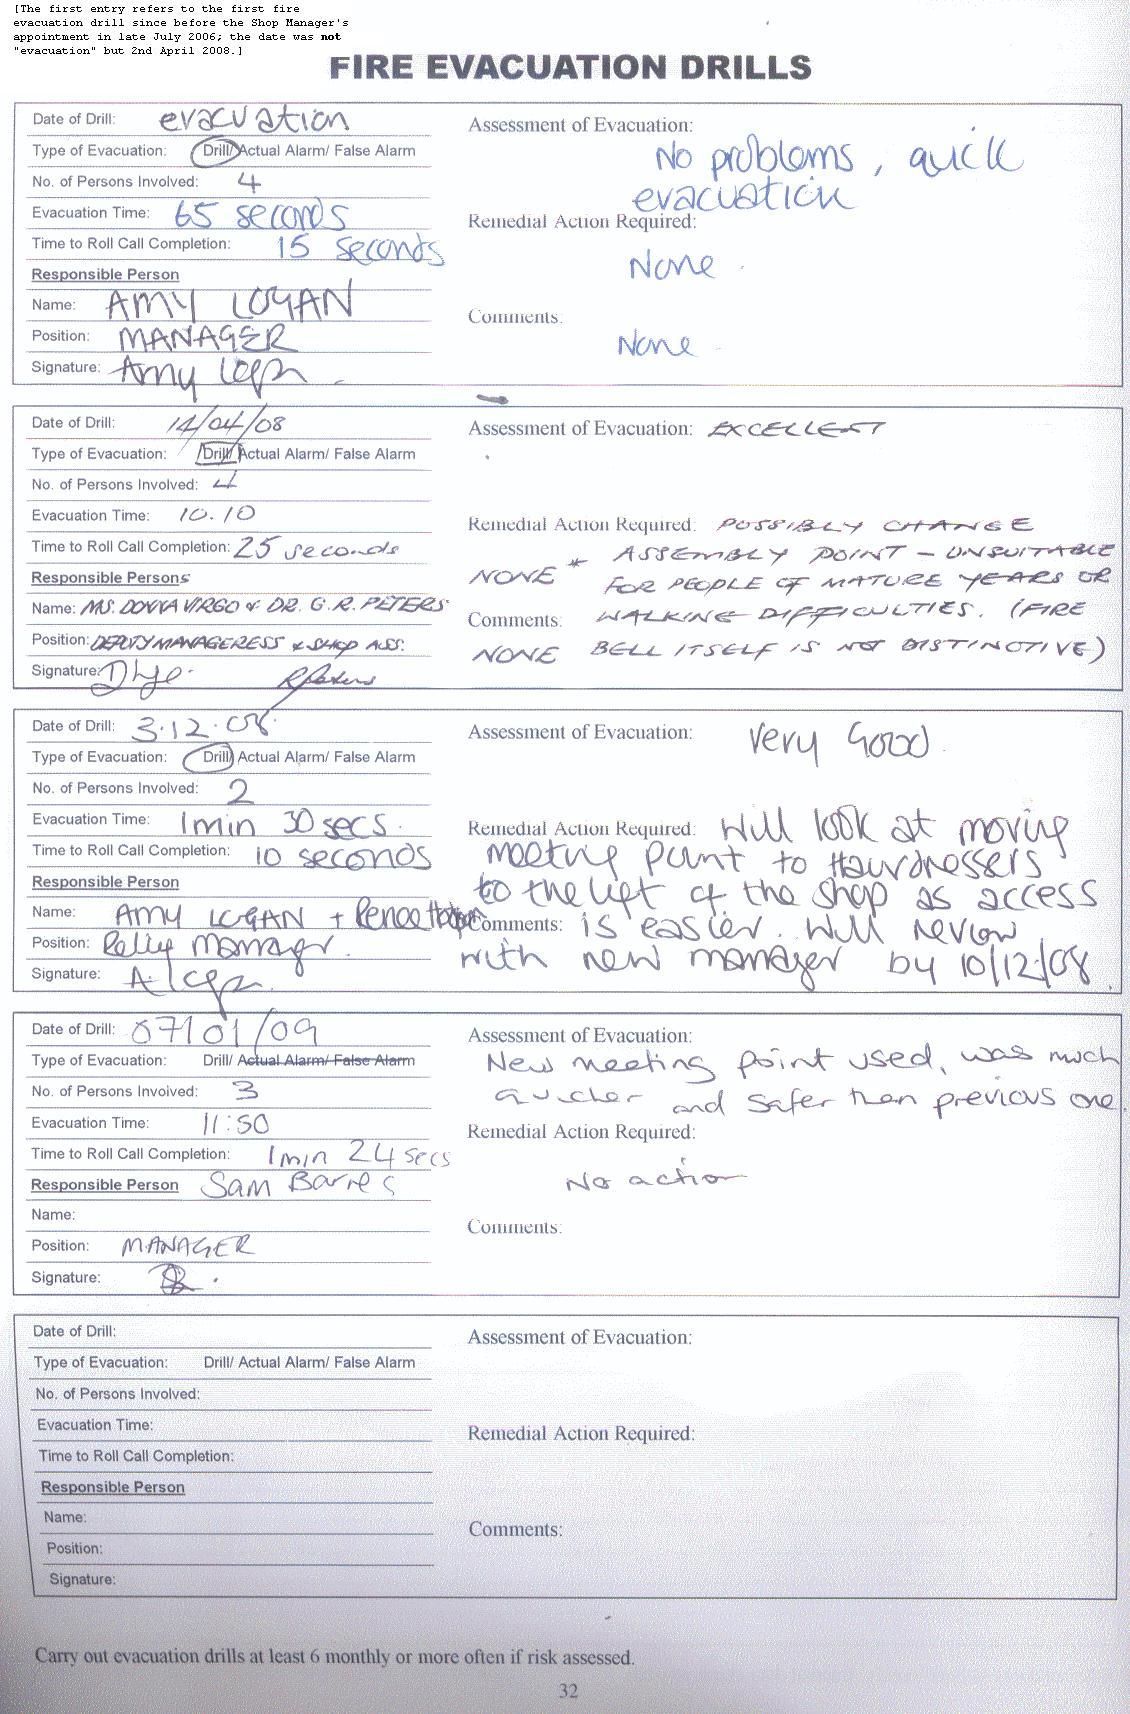 [The first entry refers to the first fire
evacuation drill since before the Shop Manager's
appointment in late July 2006; the date was not
"evacuation" but 2nd April 2008.]
FIRE EVACUATION DRILLS
Date of Drill: evacuation
Type of Evacuation: Drill/ Actual Alarm/ False Alarm
No. of Persons Involved: 4
Evacuation Time: 65 seconds
Time to Roll Call Completion: 15 seconds
Responsible Person
Name: AMY LOGAN
Position: MANAGER
Signature: Amy Logan
Assessment of Evacuation:
No problems, quick
evacuation
Remedial Action Required:
None
Comments:
None
Date of Drill: 14/04/08
Type of Evacuation: Drill/ Actual Alarm/ False Alarm
No. of Persons Involved: 4
Evacuation Time: 10.10
Time to Roll Call Completion: 25 seconds
Responsible Persons
Name: MS. DONNA VIRGO & DR. G.R. PETERS
Position: DEPUTY MANAGERESS & SHOP ASS.
Signature:
Assessment of Evacuation: EXCELLENT
Remedial Action Required: POSSIBLY CHANGE
* ASSEMBLY POINT – UNSUITABLE
NONE FOR PEOPLE OF MATURE YEARS OR
Comments: WALKING DIFFICULTIES. (FIRE
NONE BELL ITSELF IS NOT DISTINCTIVE)
Date of Drill: 3.12.08
Type of Evacuation: Drill/ Actual Alarm/ False Alarm
No. of Persons Involved: 2
Evacuation Time: 1 min 30 secs.
Time to Roll Call Completion: 10 seconds
Responsible Person
Name: AMY LOGAN + Renee
Position: Relief manager.
Signature: A Logan
Assessment of Evacuation: Very Good.
Remedial Action Required: Will look at moving
meeting point to Hairdressers
to the left of the shop as access
Comments: is easier. Will review
with new manager by 10/12/08.
Date of Drill: 07/01/09
Type of Evacuation: Drill/ Actual Alarm/ False Alarm
No. of Persons Involved: 3
Evacuation Time: 11:50
Time to Roll Call Completion: 1 min 24 secs
Responsible Person Sam Barnes
Name:
Position: MANAGER
Signature:
Assessment of Evacuation:
New meeting point used, was much
quicker and safer then previous one.
Remedial Action Required:
No action
Comments:
Date of Drill:
Type of Evacuation: Drill/ Actual Alarm/ False Alarm
No. of Persons Involved:
Evacuation Time:
Time to Roll Call Completion:
Responsible Person
Name:
Position:
Signature:
Assessment of Evacuation:
Remedial Action Required:
Comments:
Carry out evacuation drills at least 6 monthly or more often if risk assessed.
32